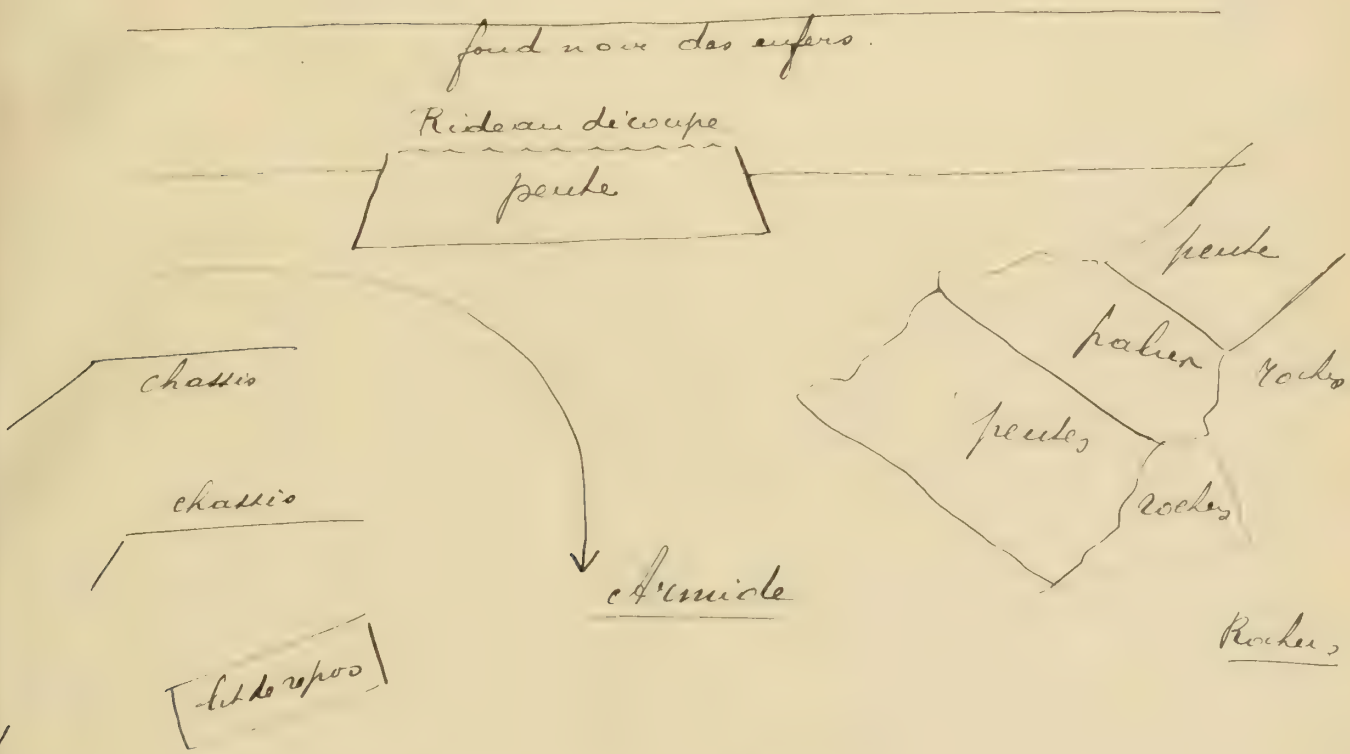 fond noir des enfers.
Rideau découpé
pente
pente
palier
roches
chassis
pentes
chassis
roches
Armide
Rochers
lit de repos